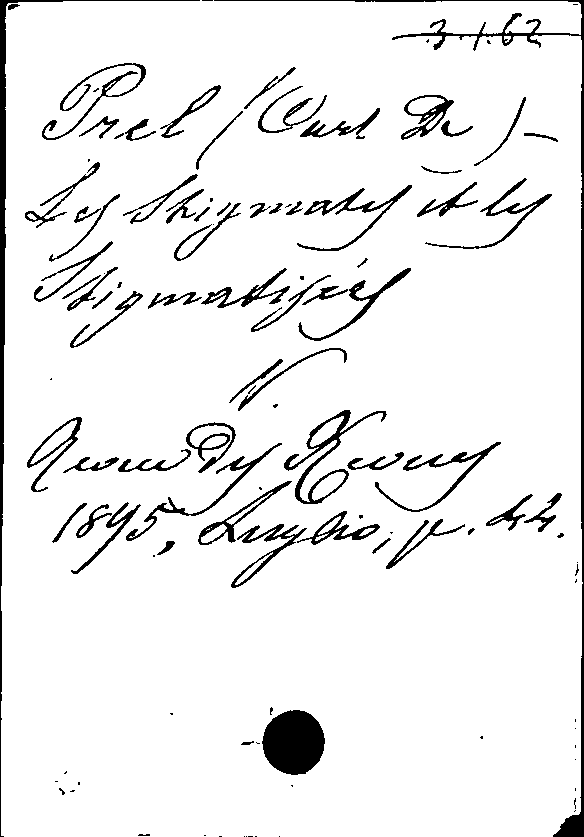 3.1.62
Prel (Carl De) -
Les Stigmates et les
Stigmatisées
V.
Revue Des Revues
1895, Luglio, p. 42.